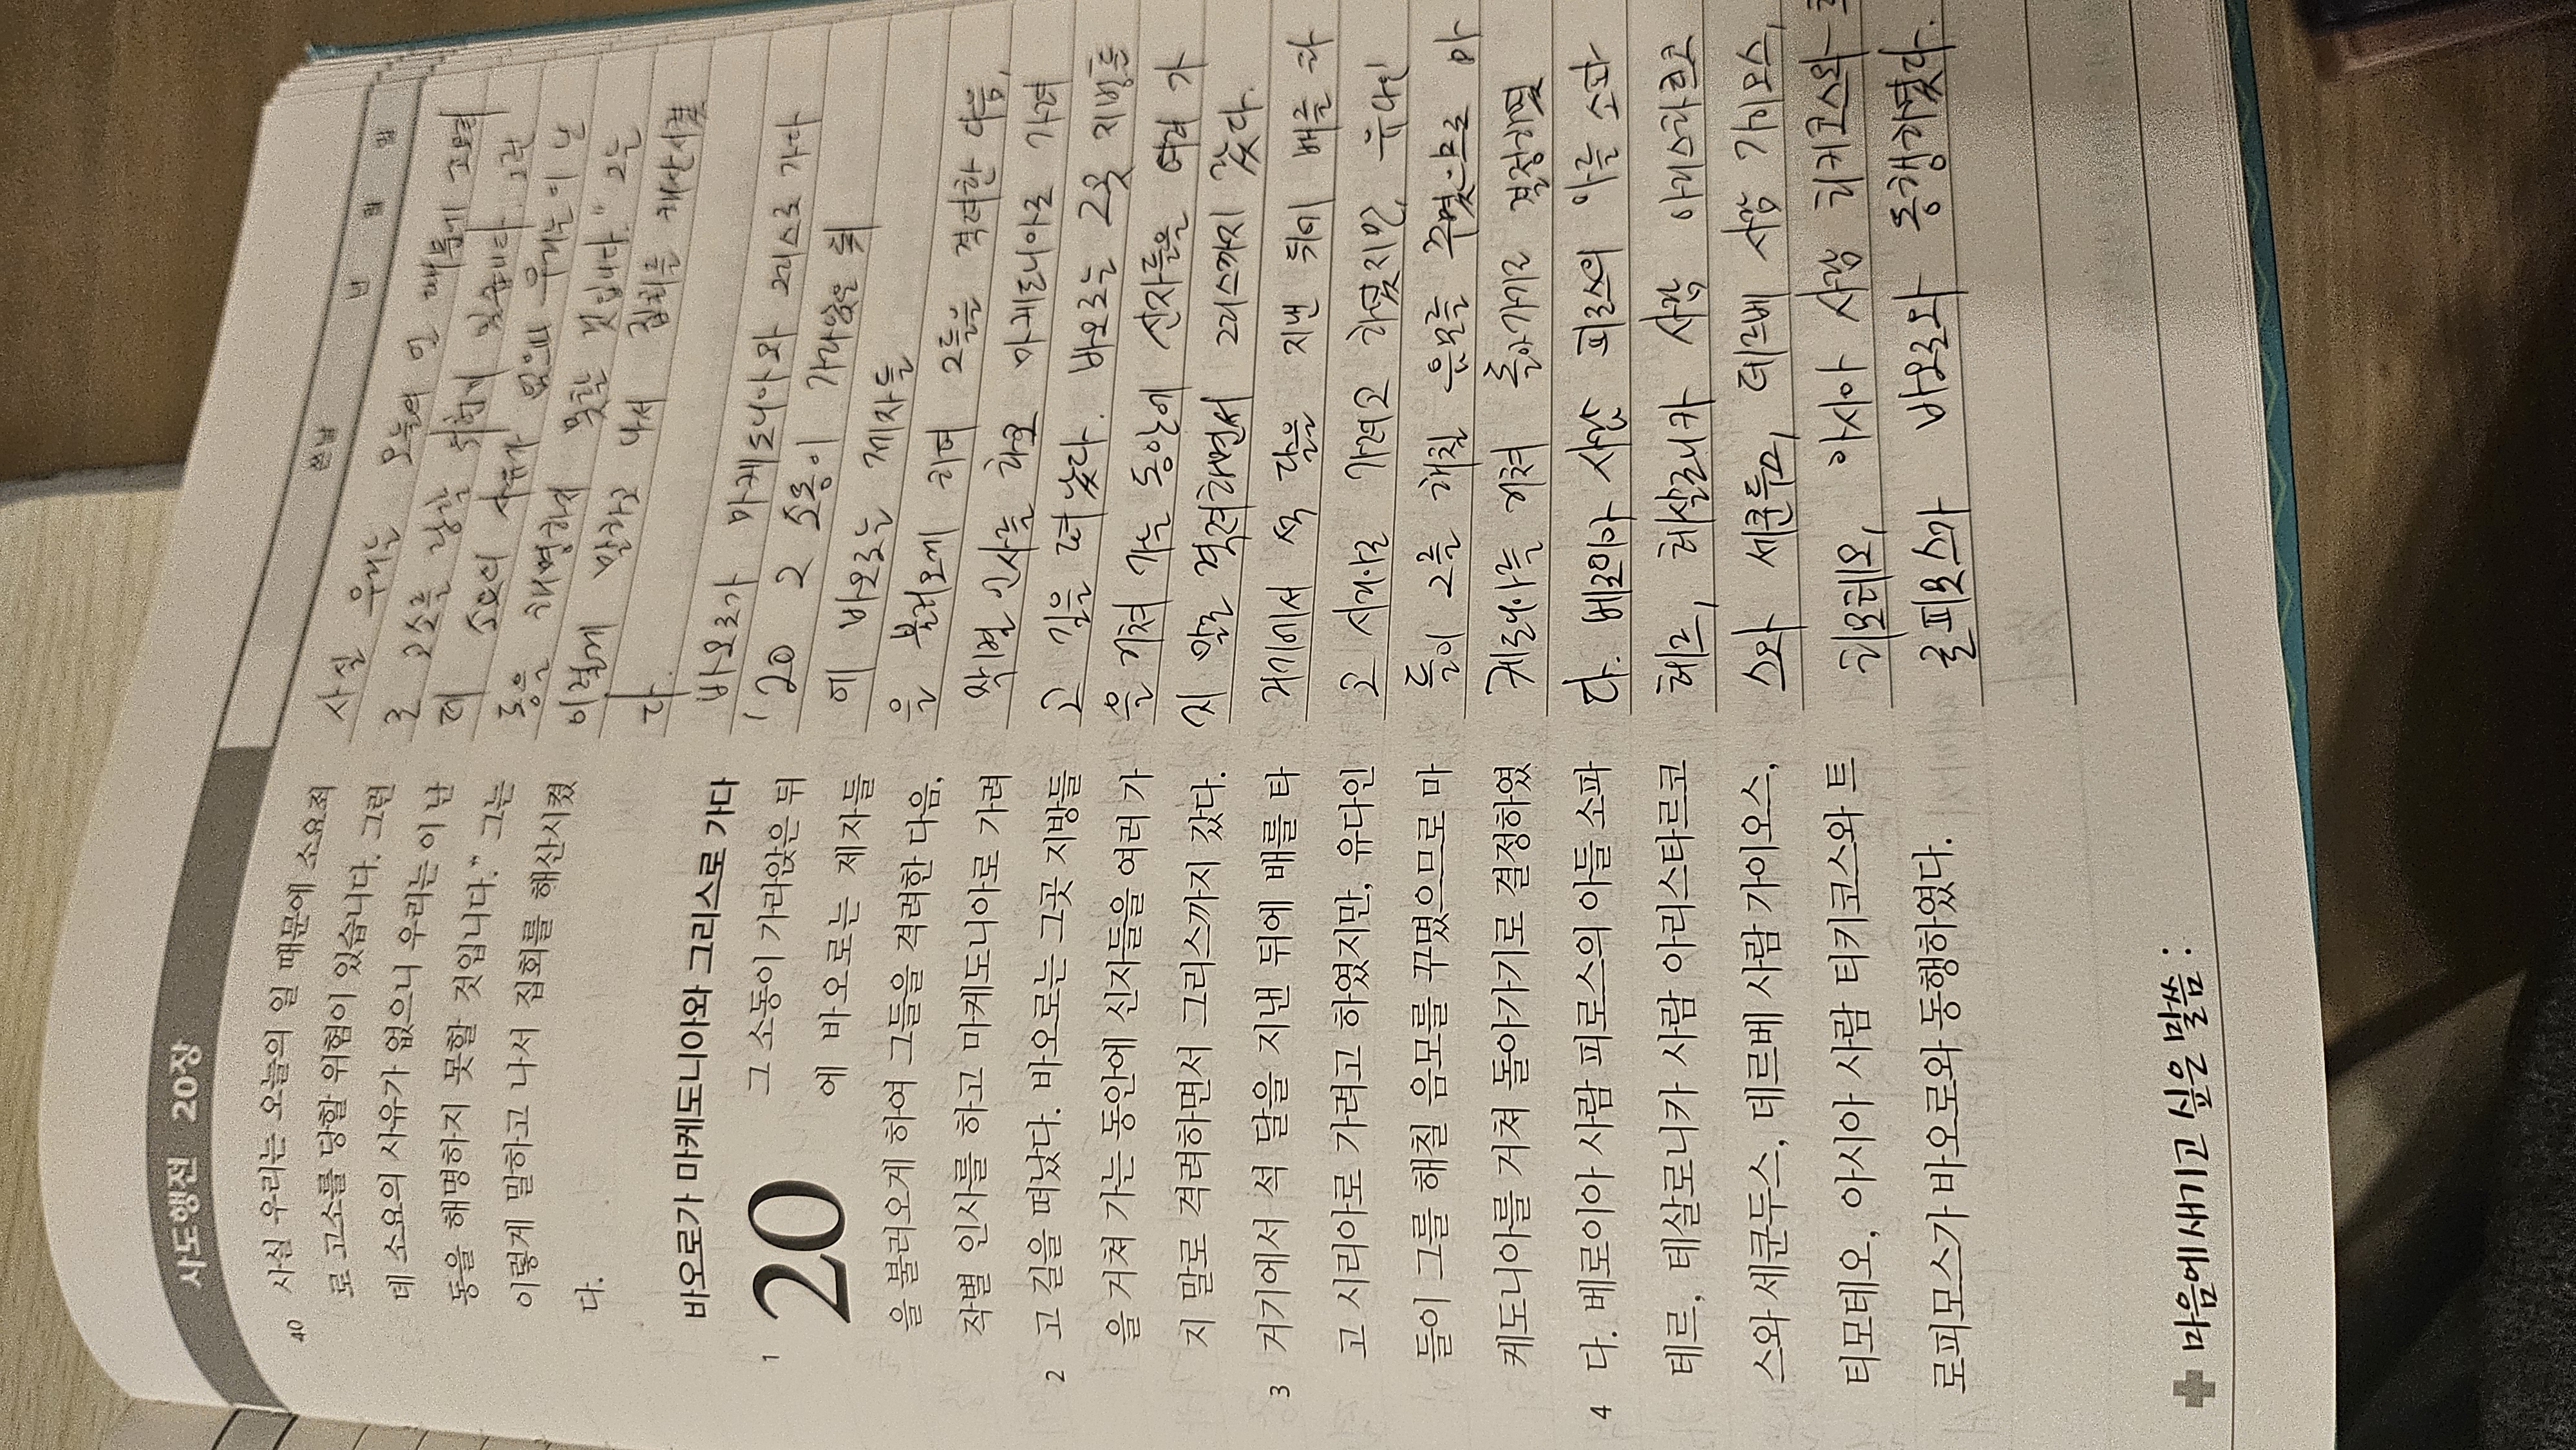 사도행전 20장
40 사실 우리는 오늘의 일 때문에 소요죄
로 고소를 당할 위험이 있습니다. 그런
데 소요의 사유가 없으니 우리는 이 난
동을 해명하지 못할 것입니다.” 그는
이렇게 말하고 나서 집회를 해산시켰
다.
바오로가 마케도니아와 그리스로 가다
20
1 그 소동이 가라앉은 뒤
에 바오로는 제자들
을 불러오게 하여 그들을 격려한 다음,
작별 인사를 하고 마케도니아로 가려
2 고 길을 떠났다. 바오로는 그곳 지방들
을 거쳐 가는 동안에 신자들을 여러 가
지 말로 격려하면서 그리스까지 갔다.
3 거기에서 석 달을 지낸 뒤에 배를 타
고 시리아로 가려고 하였지만, 유다인
들이 그를 해칠 음모를 꾸몄으므로 마
케도니아를 거쳐 돌아가기로 결정하였
4 다. 베로이아 사람 피로스의 아들 소파
테르, 테살로니카 사람 아리스타르코
스와 세쿤두스, 데르베 사람 가이오스,
티모테오, 아시아 사람 티키코스와 트
로피모스가 바오로와 동행하였다.
마음에 새기고 싶은 말씀 :
쓴 날 년 월 일
사실 우리는 오늘의 일 때문에 소요죄
로 고소를 당할 위험이 있습니다. 그런
데 소요의 사유가 없으니 우리는 이 난
동을 해명하지 못할 것입니다." 그는
이렇게 말하고 나서 집회를 해산시켰
다.
바오로가 마케도니아와 그리스로 가다
1 20 그 소동이 가라앉은 뒤
에 바오로는 제자들
을 불러오게 하여 그들을 격려한 다음,
작별 인사를 하고 마케도니아로 가려
고 길을 떠났다. 바오로는 그곳 지방들
을 거쳐 가는 동안에 신자들을 여러 가
지 말로 격려하면서 그리스까지 갔다.
거기에서 석 달을 지낸 뒤에 배를 타
고 시리아로 가려고 하였지만, 유다인
들이 그를 해칠 음모를 꾸몄으므로 마
케도니아를 거쳐 돌아가기로 결정하였
다. 베로이아 사람 피로스의 아들 소파
테르, 테살로니카 사람 아리스타르코
스와 세쿤두스, 데르베 사람 가이오스,
티모테오, 아시아 사람 티키코스와 트
로피모스가 바오로와 동행하였다.